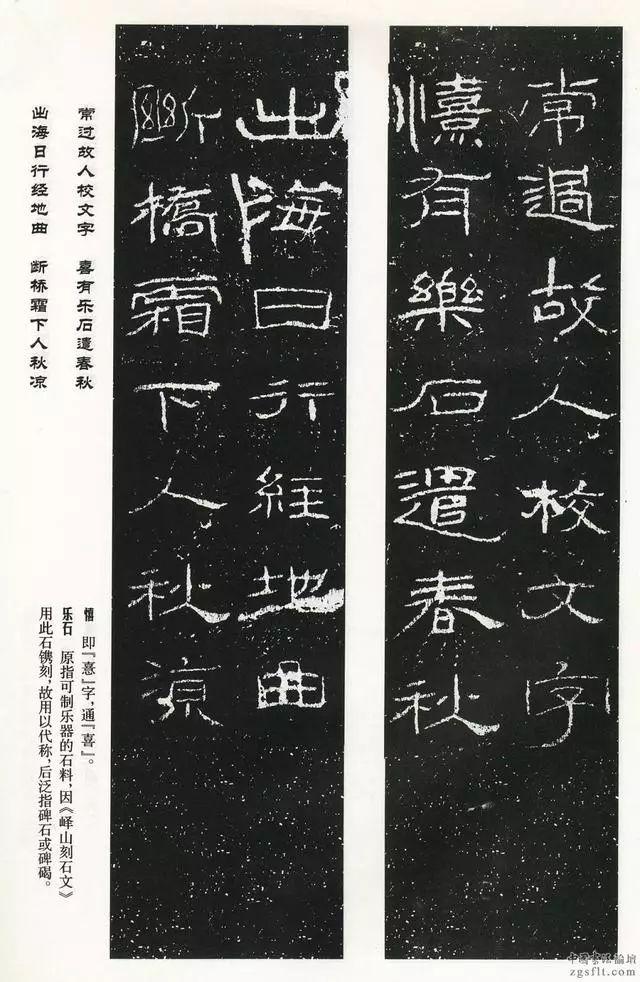 常過故人校文字
憙有樂石遣春秋
出海日行経地曲
斷橋霜下人秋涼
常过故人校文字 喜有乐石遣春秋
出海日行经地曲 断桥霜下人秋凉
憘 即『憙』字，通『喜』。
乐石 原指可制乐器的石料，因《峄山刻石文》
用此石镌刻，故用以代称，后泛指碑石或碑碣。
中国书法论坛
zgsflt.com